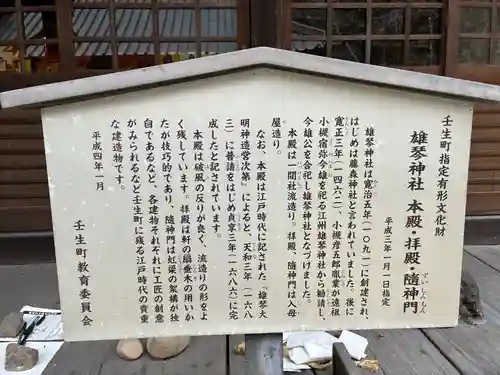 壬生町指定有形文化財
雄琴神社 本殿・拝殿・随神門
ずいしんもん
平成三年一月一日指定
雄琴神社は寛治五年(一〇九一)に創建され、
はじめは藤森神社と言われていました。後に
寛正三年(一四六二)、小槻彦五郎胤業が遠祖
小槻宿弥今雄を祀る江州雄琴神社から勧請し、
今雄公を合祀し雄琴神社となづけました。
本殿は一間社流造り。拝殿、随神門は入母
屋造り。
なお、本殿は江戸時代に記された『雄琴大
明神造営次第』によると、天和三年(一六八
三)に普請をはじめ貞享三年(一六八六)に完
成したと記されています。
本殿は破風の反りが良く、流造りの形をよ
く残しています。拝殿は軒の扇垂木の使い
かたが技巧的であり、随神門は虹梁の架構が独
自であるなど、各建物それぞれに工匠の創意
がみられるなど壬生町に残る江戸時代の貴重
な建造物です。
平成四年一月
壬生町教育委員会